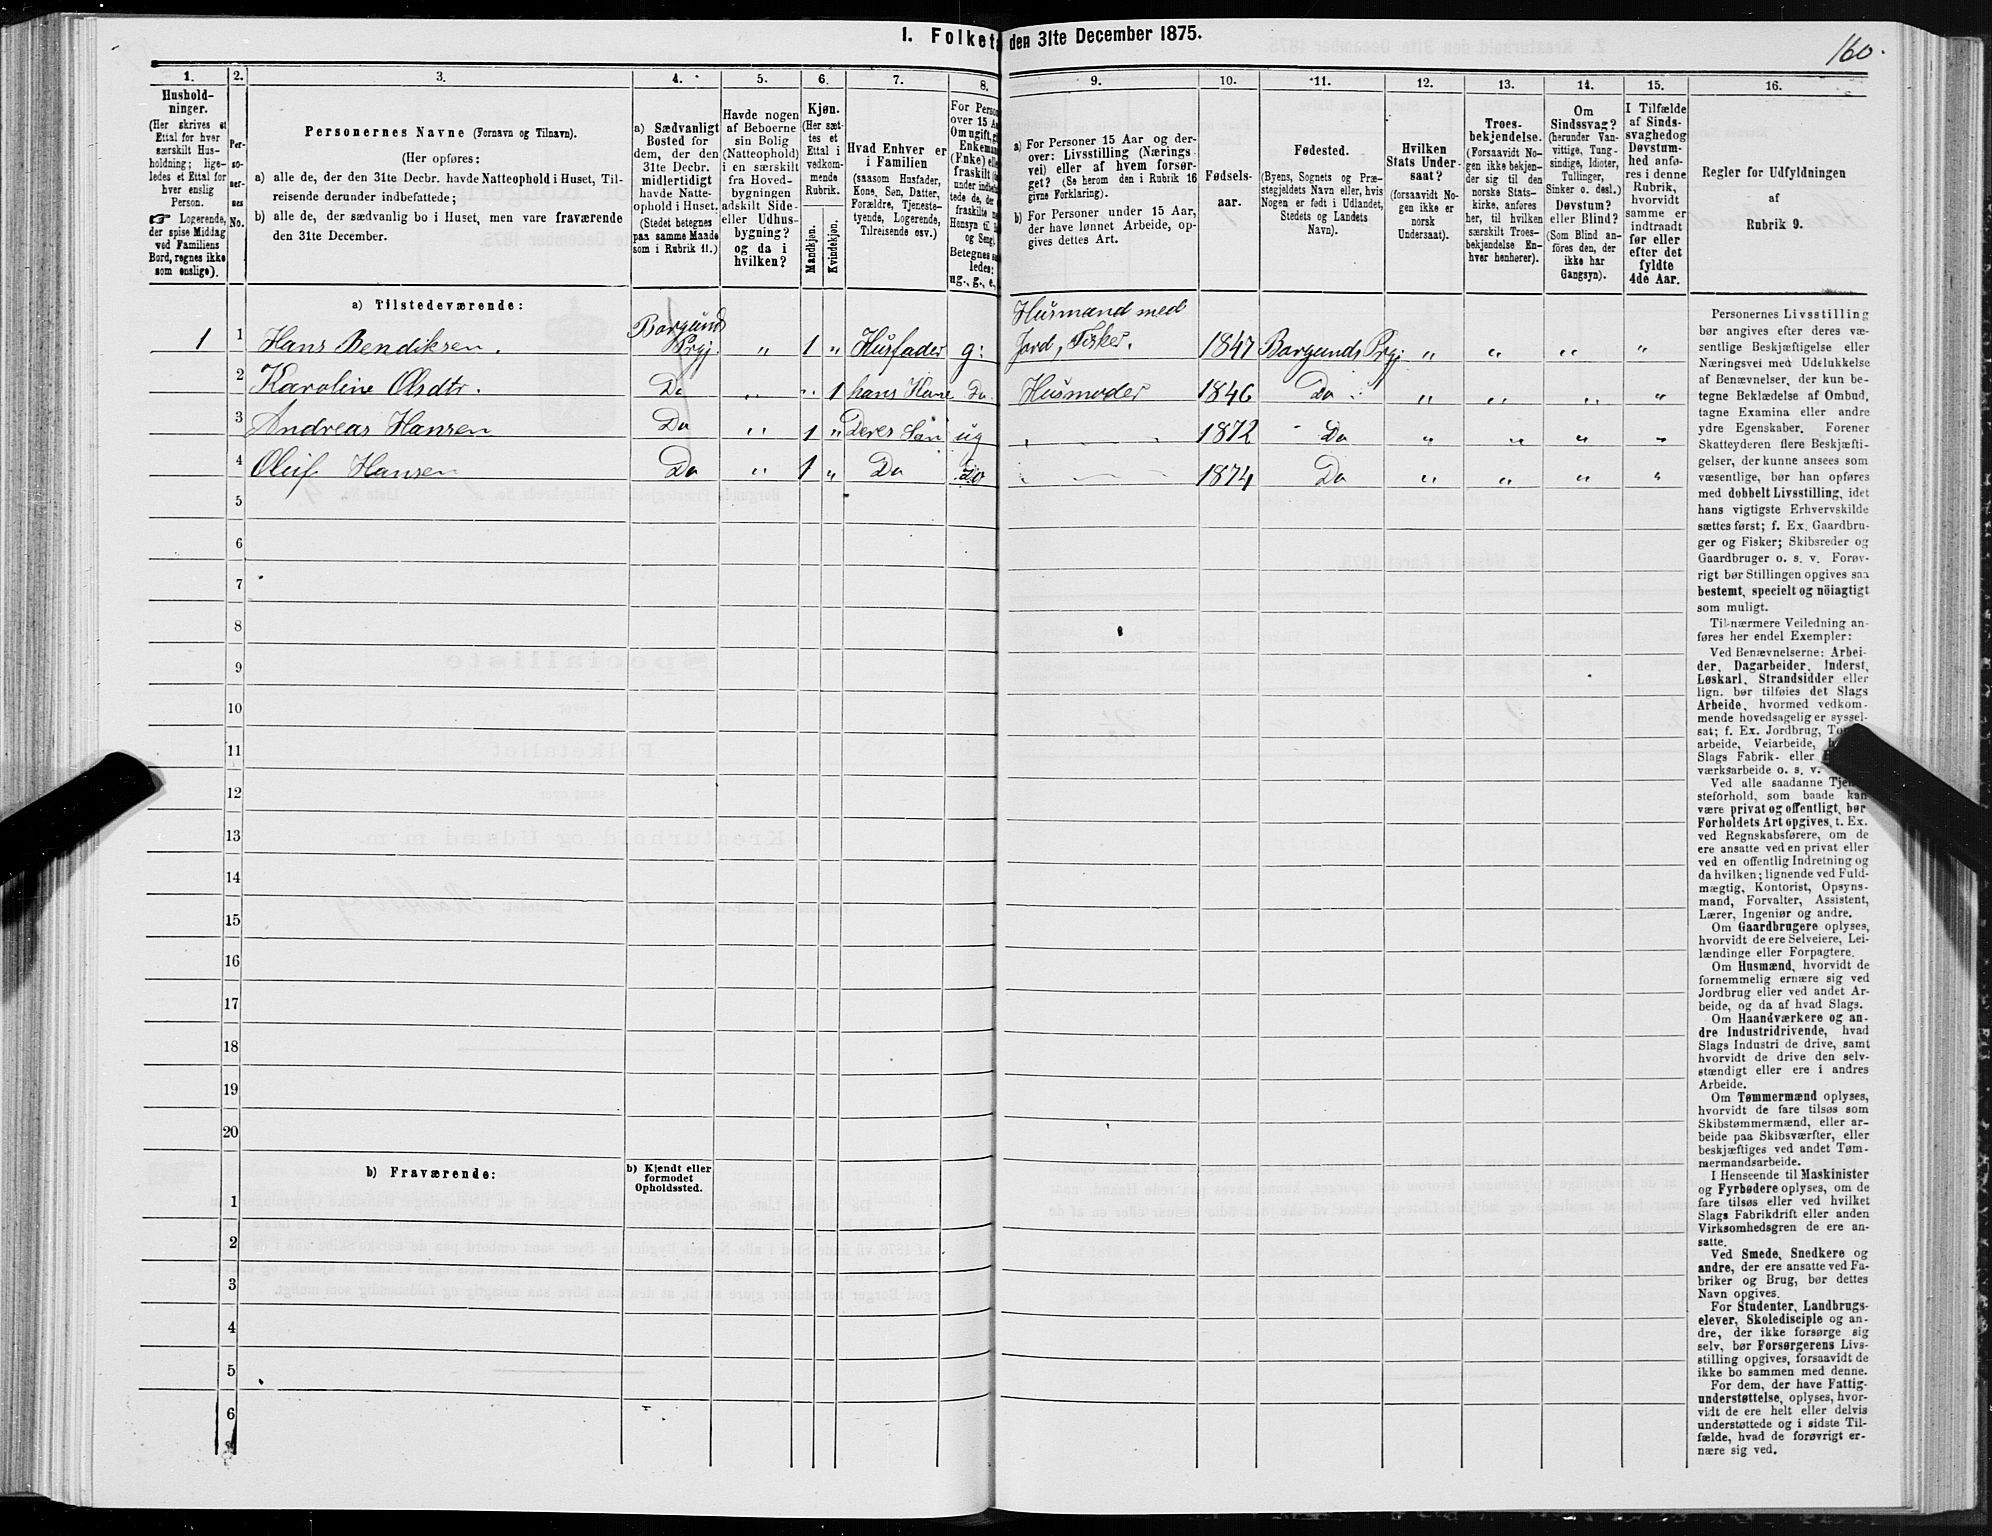 I. Folketæ den 31te December 1875.
160.
1.
2.
3.
4.
5.
6.
7.
8.
9.
10.
11.
12.
13.
14.
15.
16.
Hushold-
ninger.
(Her skrives et
Ettal for hver
særskilt Hus-
holdning; lige-
ledes et Ettal for
hver enslig
Person.
☞ Logerende,
der spise Middag
ved Familiens
Bord, regnes ikke
som enslige).
Per-
so-
ner-
nes
No.
Personernes Navne (Fornavn og Tilnavn).
(Her opføres:
a) alle de, der den 31te Decbr. havde Natteophold i Huset, Til-
reisende derunder indbefattede;
b) alle de, der sædvanlig bo i Huset, men vare fraværende
den 31te December.
a) Sædvanligt
Bosted for
dem, der den
31te Decbr.
midlertidigt
havde Natte-
ophold i Huset.
(Stedet betegnes
paa samme Maade
som i Rubrik 11.)
Havde nogen
af Beboerne
sin Bolig
(Natteophold)
i en særskilt
fra Hoved-
bygningen
adskilt Side-
eller Udhus-
bygning?
og da i
hvilken?
Kjøn.
(Her sæt-
tes et
Ettal i
vedkom-
mende
Rubrik.
Mandkjøn.
Kvindekjøn.
Hvad Enhver er
i Familien
(saasom Husfader,
Kone, Søn, Datter,
Forældre, Tjeneste-
tyende, Logerende,
Tilreisende osv.)
For Person
over 15 Aa
Om ugift, g
Enkeman
(Fnke) ell
fraskilt
Betegnes s
ledes:
ug., g., e.,
a) For Personer 15 Aar og der-
over: Livsstilling (Nærings-
vei) eller af hvem forsør-
get? (Se herom den i Rubrik 16
givne Forklaring).
b) For Personer under 15 Aar,
der have lønnet Arbeide, op-
gives dettes Art.
Fødsels-
aar.
Fødested.
(Byens, Sognets og Præ-
stegjeldets Navn eller, hvis
Nogen er født i Udlandet,
Stedets og Landets
Navn).
Hvilken
Stats Under-
saat?
(forsaavidt No-
gen ikke er
norsk
Undersaat).
Troes-
bekjendelse.
(Forsaavidt No-
gen ikke bekjen-
der sig til den
norske Stats-
kirke, anføres
her, til hvilken
særskilt Troes-
bekjendelse En-
hver henhører).
Om
Sindssvag?
(herunder Van-
vittige, Tung-
sindige, Idioter,
Tullinger,
Sinker o. desl.)
Døvstum?
eller Blind?
(Som Blind an-
føres den, der
ikke har
Gangsyn).
I Tilfælde
af Sinds-
svaghedog
Døvstum-
hed anfø-
res i denne
Rubrik,
hvorvidt
samme er
indtraadt
før eller
efter det
fyldte
4de Aar.
Regler for Udfyldningen
af
Rubrik 9.
a) Tilstedeværende:
1 1 Hans Bendiksen. Borgunds Prgj. „ 1 „ Husfader g: Husmand med Jord, Fisker. 1847 Borgunds Prgj. „ „ „ „
2 Karoline Olsdtr. Do „ „ 1 hans Kone Do. Husmoder 1846 Do „ „ „ „
3 Andreas Hansen Do „ 1 „ Deres Søn ug „ 1872 Do „ „ „ „
4 Oluf Hansen Do „ 1 „ Do Do 1874 Do „ „ „ „
5
6
7
8
9
10
11
12
13
14
15
16
17
18
19
20
b) Fraværende:
b) Kjendt eller
formodet
Opholdssted.
1
2
3
4
5
6
Personernes Livsstilling
bør angives efter deres væ-
sentlige Beskjæftigelse eller
Næringsvei med Udelukkelse
af Benævnelser, der kun be-
tegne Beklædelse af Ombud,
tagne Examina eller andre
ydre Egenskaber. Forener
Skatteyderen flere Beskjæfti-
gelser, der kunne ansees som
væsentlige, bør han opføres
med dobbelt Livsstilling, idet
hans vigtigste Erhvervskilde
sættes først; f. Ex. Gaardbru-
ger og Fisker; Skibsreder og
Gaardbruger o. s. v. Forøv-
rigt bør Stillingen opgives saa
bestemt, specielt og nöiagtigt
som muligt.
Til nærmere Veiledning an-
føres her endel Exempler:
Ved Benævnelserne: Arbei-
der, Dagarbeider, Inderst,
Løskarl, Strandsidder eller
lign. bør tilføies det Slags
Arbeide, hvormed vedkom-
mende hovedsagelig er syssel-
sat; f. Ex. Jordbrug,
arbeide, Veiarbeide,
Slags Fabrik- eller
værksarbeide o. s. v.
Ved alle saadanne
steforhold, som baade kan
være privat og offentligt, bør
Forholdets Art opgives, t. Ex.
ved Regnskabsførere, om de
ere ansatte ved en privat eller
ved en offentlig Indretning og
da hvilken; lignende ved Fuld-
mægtig, Kontorist, Opsyns-
mand, Forvalter, Assistent,
Lærer, Ingeniør og andre.
Om Gaardbrugere oplyses,
hvorvidt de ere Selveiere, Lei-
lændinge eller Forpagtere.
Om Husmænd, hvorvidt de
fornemmelig ernære sig ved
Jordbrug eller ved andet Ar-
beide, og da af hvad Slags.
Om Haandværkere og an-
dre Industridrivende, hvad
Slags Industri de drive, samt
hvorvidt de drive den selv-
stændigt eller ere i andres
Arbeide.
Om Tømmermænd oplyses,
hvorvidt de fare tilsøs som
Skibstømmermænd, eller ar-
beide paa Skibsværfter, eller
beskjæftiges ved andet Tøm-
mermandsarbeide.
I Henseende til Maskinister
og Fyrbødere oplyses, om de
fare tilsøs eller ved hvilket
Slags Fabrikdrift eller anden
Virksomhedsgren de ere an-
satte.
Ved Smede, Snedkere og
andre, der ere ansatte ved Fa-
briker og Brug, bør dettes
Navn opgives.
For Studenter, Landbrugs-
elever, Skoledisciple og an-
dre, der ikke forsørge sig
selv, bør Forsørgerens Livs-
stilling opgives, forsaavidt de
ikke bo sammen med denne.
For dem, der have Fattig-
understøttelse, oplyses, hvor-
vidt de ere helt eller delvis
understøttede og i sidste Til-
fælde, hvad de forøvrigt er-
nære sig ved.